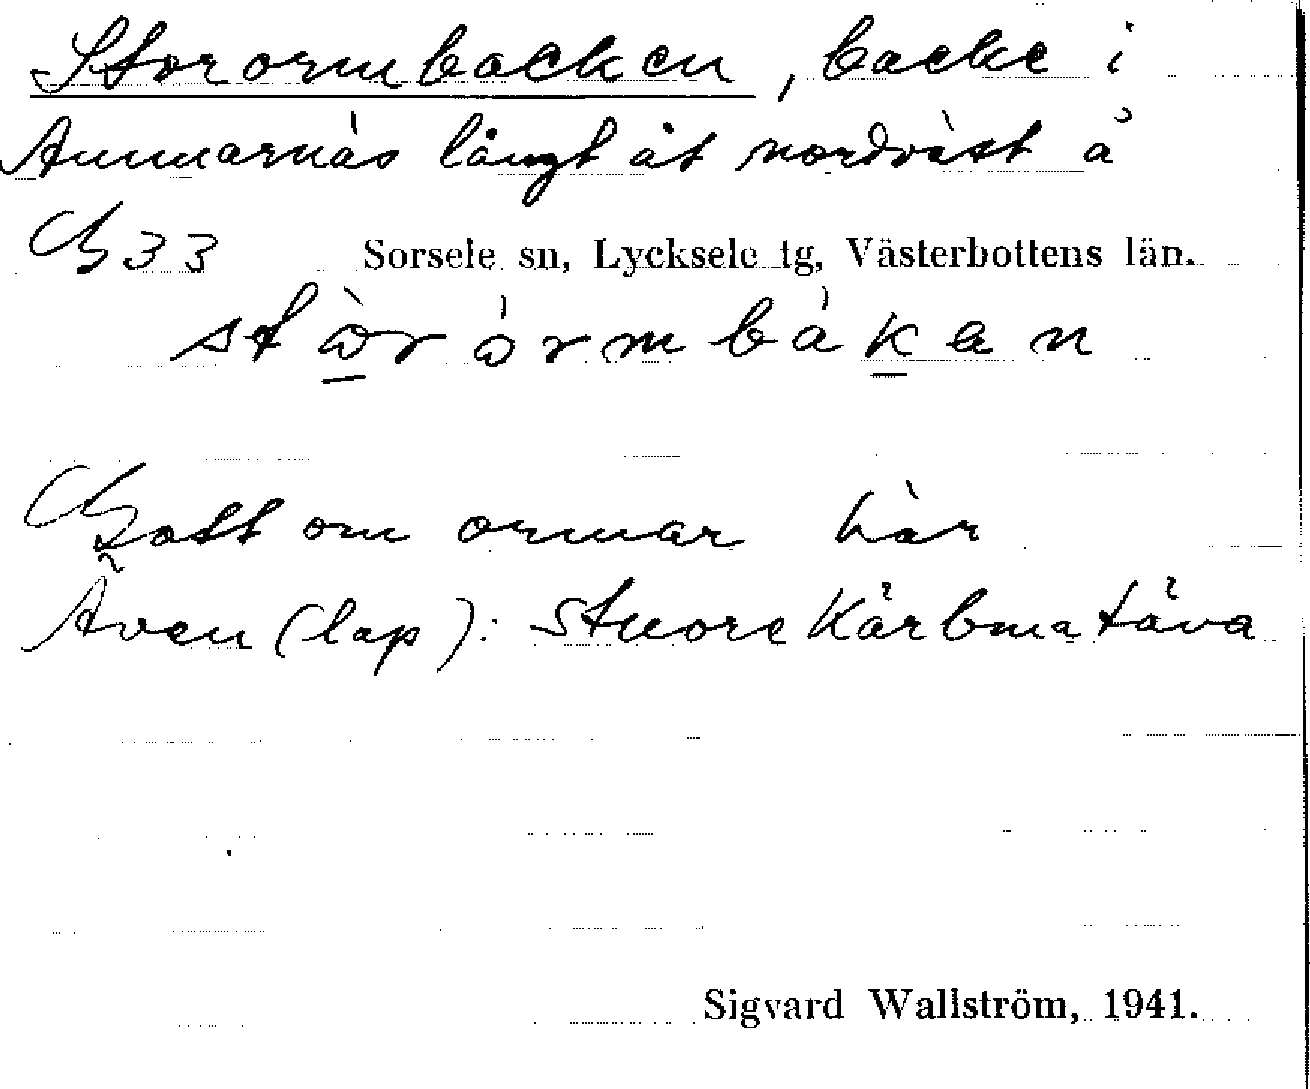 Storormbacken, backe i
Ammarnäs långt åt nordväst å
G33 Sorsele sn, Lycksele tg, Västerbottens län.
stòrórmbákan
Gott om ormar här
Även (lap): Stuore Kärbma täva
Sigvard Wallström, 1941.